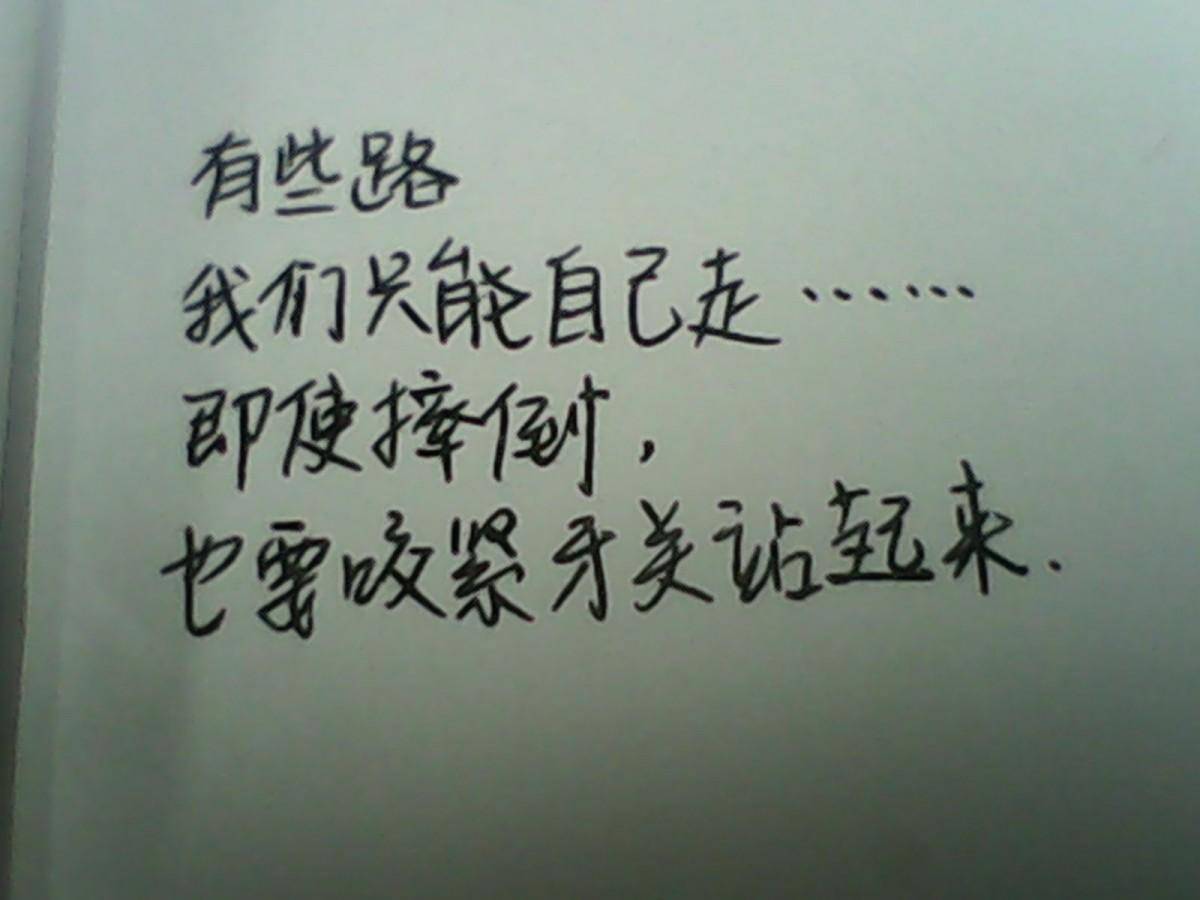 有些路
我们只能自己走……
即使摔倒,
也要咬紧牙关站起来.